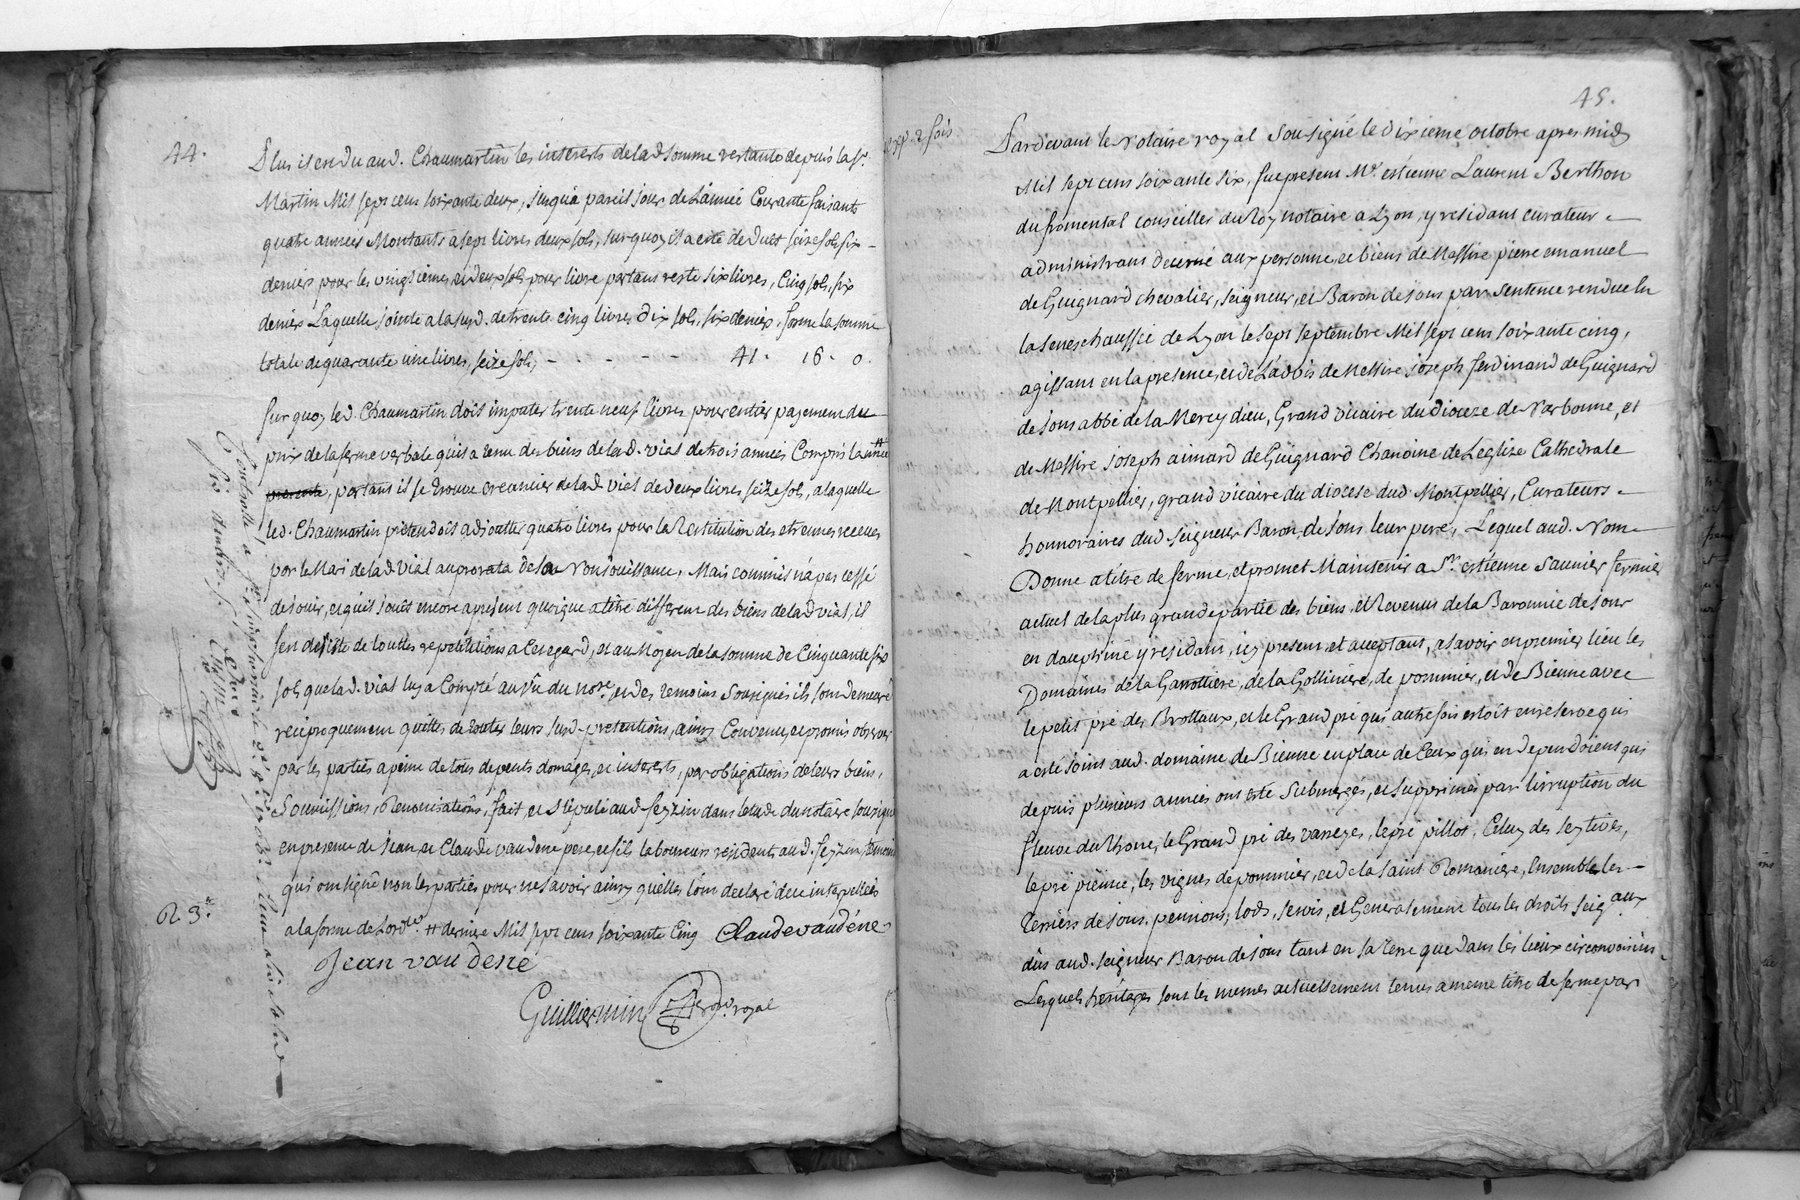 44.
Plus il en du aud. Chaumartin les interests de lad somme restante depuis la St.
Martin Mil sept cens soixante deux, jusqu'a pareil jour de L'année Courante faisants
quatre années Montants a sept livres deux sols, sur quoy il a eté deduit seize sols six
deniers pour les vingtiemes, et deux sols pour livre partans reste six livres, Cinq sols, six
deniers Laquelle jointe a la susd. de trente cinq livres dix sols, six deniers, forme la somme
totale de quarante une livres, seize sols, - - - - - 41. 16. 0.
sur quoy led. Chaumartin dois imputer trente neuf livres pour entier payement du
prix de la ferme verbale qu'il a tenu des biens de lad. vial de trois années Compris la #
presente, partans il se trouve creancier de lad vial de deux livres seize sols, a laquelle
led. Chaumartin pretendois adjoutter quatre livres pour la Restitution des etrennes receues
par le Mari de lad vial au prorata de sa Nonjouissance, Mais comme il n'a pas cessé
de jouir, et qu'il jouit encore a present quoique a titre different des biens de lad vial, il
s'en desiste de touttes repetitions a cet egard, et au Moyen de la somme de Cinquante six
sols que lad. vial luy a Compté au vu du nore. et des temoins Sousignés ils sont demeuré
reciproquement quittes de toutes leurs susd. pretentions, ainsy Convenu, et promis observer
par les parties a peine de tous depents domages, et interests, par obligations de leurs biens,
Soumissions, Renonciations, fait et stipulé aud seyzin dans letude du notaire sousigné
en presence de Jean, et Claude vaudene pere, et fils laboureurs residents aud. seyzin temoins
qui ont signé non les parties pour ne savoir ainsy quelles l'ont declaré de ce interpellées
a la forme de Lord. # derniere Mil sept cens soixante Cinq Claude vaudene
R 3.
Jean vaudene
Guilliermin nore. royal
45.
exp. 2 fois
Pardevant le Notaire royal Sousigné le dixieme octobre apres midy
Mil sept cens soixante six, fut present Mr. estienne Laurent Berthon
du fromental conseiller du Roy notaire a Lyon, y residant curateur
administrant decerné aux personne, et biens de Messire pierre emanuel
de Guignard chevalier, Seigneur, et Baron de jons par sentence rendue en
la seneschaussée de Lyon le sept septembre Mil sept cens soixante cinq,
agissant en la presence, et de L'advis de Messire joseph ferdinand de Guignard
de jons abbé de la Mercy dieu, Grand vicaire du dioceze de Narbonne, et
de Messire Joseph aimard de Guignard Chanoine de Leglize Cathedrale
de Montpellier, grand vicaire du diocese dud Montpellier, Curateurs
honnoraires dud seigneur Baron de jons leur pere, Lequel aud. Nom
Donne a titre de ferme, et promet Maintenir a Sr. estienne saunier fermier
actuel de la plus grande partie des biens, et Revenus de la Baronnie de jons
en dauphiné y residant, icy present, et acceptant, a savoir en premier lieu les
Domaines de la Garottiere, de la Golliniere, de pommier, et de Bienne avec
le petit pré des Brottaux, et le Grand pré qui autrefois estoit en reserve qui
a esté joint aud. domaine de Bienne en place de Ceux qui en dependoient qui
depuis plusieurs années ont esté Submergés, et supprimés par lirruption du
fleuve du Rhone, le Grand pré des varezes, le pré pillot, Celuy des seytives,
le pré pieince, les vignes de pommier, et de la saint Romaniere, Ensemble les
Terriers de jons. pensions, lods, servis, et Generalement tous les droits seigaux
dus aud. seigneur Baron de jons tant en sa terre que dans les lieux circonvoisins
Lesquels heritages sont les memes actuellement tenus a meme titre de ferme par